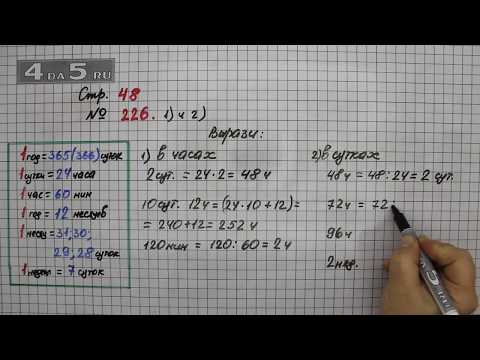 4 DA 5.RU
Стр. 48
№ 226. 1) и 2)
Вырази:
1 год = 365 (366) суток
1 сутки = 24 часа
1 час = 60 мин
1 год = 12 месяцев
1 месяц = 31, 30,
29, 28 суток
1 неделя = 7 суток
1) в часах
2 сут. = 24 · 2 = 48 ч
10 сут. 12 ч = (24 · 10 + 12) =
= 240 + 12 = 252 ч
120 мин = 120 : 60 = 2 ч
2) в сутках
48 ч = 48 : 24 = 2 сут.
72 ч = 72
96 ч
2 нед.
4 DA 5.RU